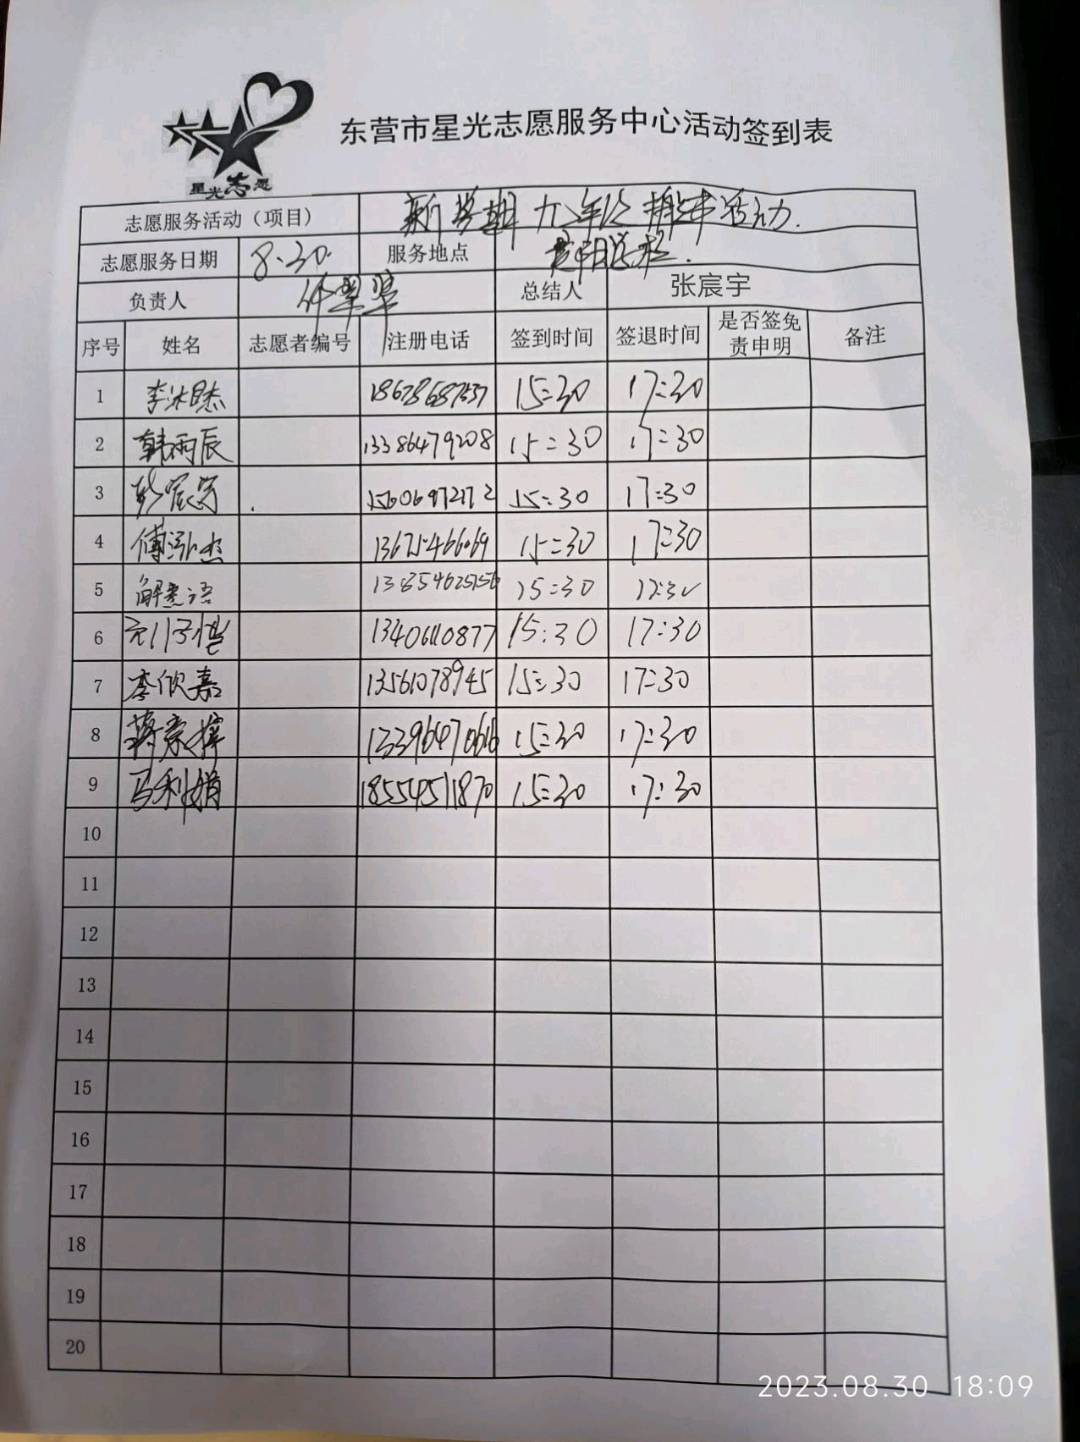 星光志愿
东营市星光志愿服务中心活动签到表
志愿服务活动（项目） 新学期 九年级 搬书活动.
志愿服务日期 8.30. 服务地点
负责人 总结人 张宸宇
序号 姓名 志愿者编号 注册电话 签到时间 签退时间 是否签免责申明 备注
1 15:30 17:30
2 韩雨辰 13386479208 15:30 17:30
3 15:30 17:30
4 傅泓杰 15:30 17:30
5 15:30 17:30
6 13406110877 15:30 17:30
7 李欣嘉 13561078945 15:30 17:30
8 15:30 17:30
9 马利娟 18554511870 15:30 17:30
10
11
12
13
14
15
16
17
18
19
20
2023.08.30 18:09